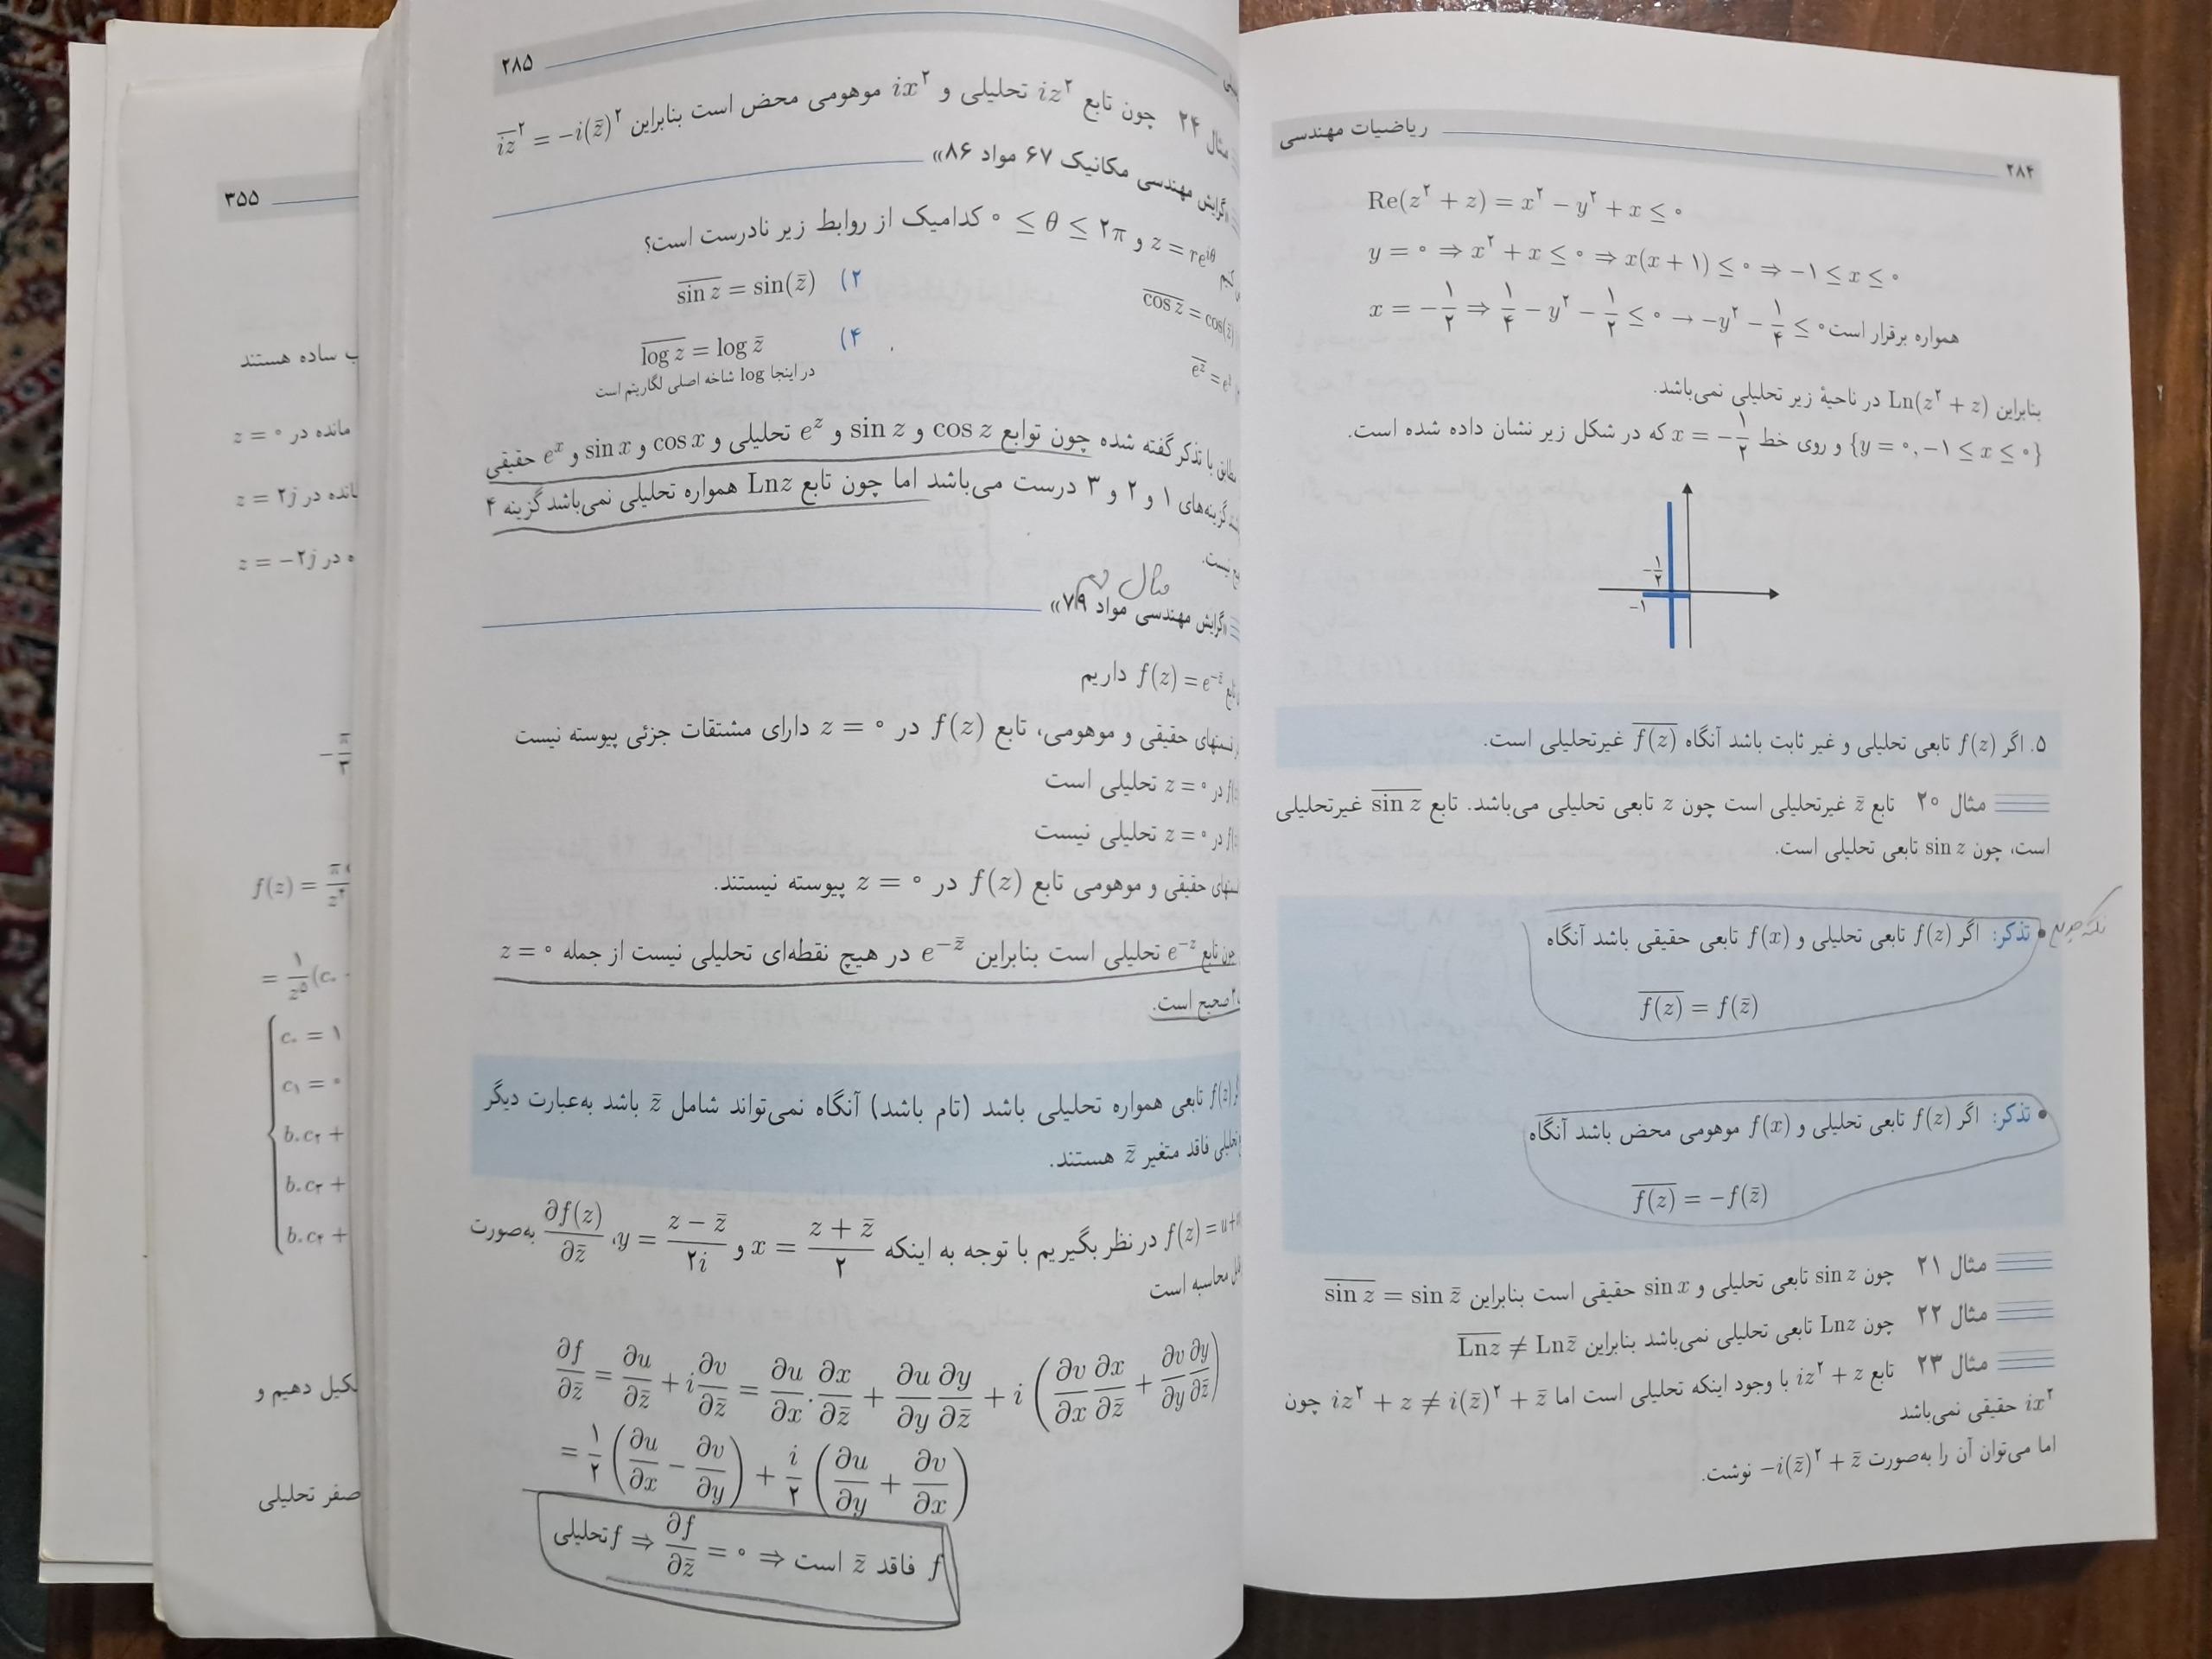 ریاضیات مهندسی
۲۸۴
Re(z² + z) = x² − y² + x ≤ ۰
y = ۰ ⇒ x² + x ≤ ۰ ⇒ x(x + ۱) ≤ ۰ ⇒ −۱ ≤ x ≤ ۰
x = −۱/۲ ⇒ ۱/۴ − y² − ۱/۲ ≤ ۰ → −y² − ۱/۴ ≤ ۰ همواره برقرار است
بنابراین Ln(z² + z) در ناحیهٔ زیر تحلیلی نمی‌باشد.
{y = ۰, −۱ ≤ x ≤ ۰} و روی خط x = −۱/۲ که در شکل زیر نشان داده شده است.
−۱/۲
−۱
۵. اگر f(z) تابعی تحلیلی و غیر ثابت باشد آنگاه f̅(̅z̅)̅ غیرتحلیلی است.
مثال ۲۰ تابع z̄ غیرتحلیلی است چون z تابعی تحلیلی می‌باشد. تابع s̅i̅n̅ ̅z̅ غیرتحلیلی
است، چون sin z تابعی تحلیلی است.
تذکر: اگر f(z) تابعی تحلیلی و f(x) تابعی حقیقی باشد آنگاه
f̅(̅z̅)̅ = f(z̄)
تذکر: اگر f(z) تابعی تحلیلی و f(x) موهومی محض باشد آنگاه
f̅(̅z̅)̅ = −f(z̄)
مثال ۲۱ چون sin z تابعی تحلیلی و sin x حقیقی است بنابراین s̅i̅n̅ ̅z̅ = sin z̄
مثال ۲۲ چون Lnz تابعی تحلیلی نمی‌باشد بنابراین L̅n̅z̅ ≠ Lnz̄
مثال ۲۳ تابع iz² + z با وجود اینکه تحلیلی است اما iz² + z ≠ i(z̄)² + z̄ چون
ix² حقیقی نمی‌باشد
اما می‌توان آن را به‌صورت −i(z̄)² + z̄ نوشت.
۲۸۵
مثال ۲۴ چون تابع iz² تحلیلی و ix² موهومی محض است بنابراین i̅z̅² = −i(z̄)²
«گرایش مهندسی مکانیک ۶۷ مواد ۸۶»
z = re^{iθ} و ۰ ≤ θ ≤ ۲π کدامیک از روابط زیر نادرست است؟
c̅o̅s̅ ̅z̅ = cos(z̄)
۲) s̅i̅n̅ ̅z̅ = sin(z̄)
۴) l̅o̅g̅ ̅z̅ = log z̄
در اینجا log شاخه اصلی لگاریتم است
با تذکر گفته شده چون توابع cos z و sin z و e^z تحلیلی و cos x و sin x و e^x حقیقی
گزینه‌های ۱ و ۲ و ۳ درست می‌باشد اما چون تابع Lnz همواره تحلیلی نمی‌باشد گزینه ۴
نیست.
مثال
«گرایش مهندسی مواد ۷۹»
f(z) = e^{−z̄} داریم
حقیقی و موهومی، تابع f(z) در z = ۰ دارای مشتقات جزئی پیوسته نیست
در z = ۰ تحلیلی است
در z = ۰ تحلیلی نیست
حقیقی و موهومی تابع f(z) در z = ۰ پیوسته نیستند.
چون تابع e^{−z} تحلیلی است بنابراین e^{−z̄} در هیچ نقطه‌ای تحلیلی نیست از جمله z = ۰
صحیح است.
f(z) تابعی همواره تحلیلی باشد (تام باشد) آنگاه نمی‌تواند شامل z̄ باشد به‌عبارت دیگر
فاقد متغیر z̄ هستند.
در نظر بگیریم با توجه به اینکه x = (z + z̄)/۲ و y = (z − z̄)/۲i، ∂f(z)/∂z̄ به‌صورت
محاسبه است
∂f/∂z̄ = ∂u/∂z̄ + i ∂v/∂z̄ = ∂u/∂x · ∂x/∂z̄ + ∂u/∂y ∂y/∂z̄ + i (∂v/∂x ∂x/∂z̄ + ∂v/∂y ∂y/∂z̄)
= ۱/۲ (∂u/∂x − ∂v/∂y) + i/۲ (∂u/∂y + ∂v/∂x)
f فاقد z̄ است ⇒ ∂f/∂z̄ = ۰ ⇒ f تحلیلی
۳۵۵
ساده هستند
مانده در z = ۰
در z = ۲j
در z = −۲j
f(z) =
= ۱/z⁵ (c۰
c۰ = ۱
c۱ = ۰
b۰c۲ +
b۰c۳ +
b۰c۴ +
دهیم و
صفر تحلیلی